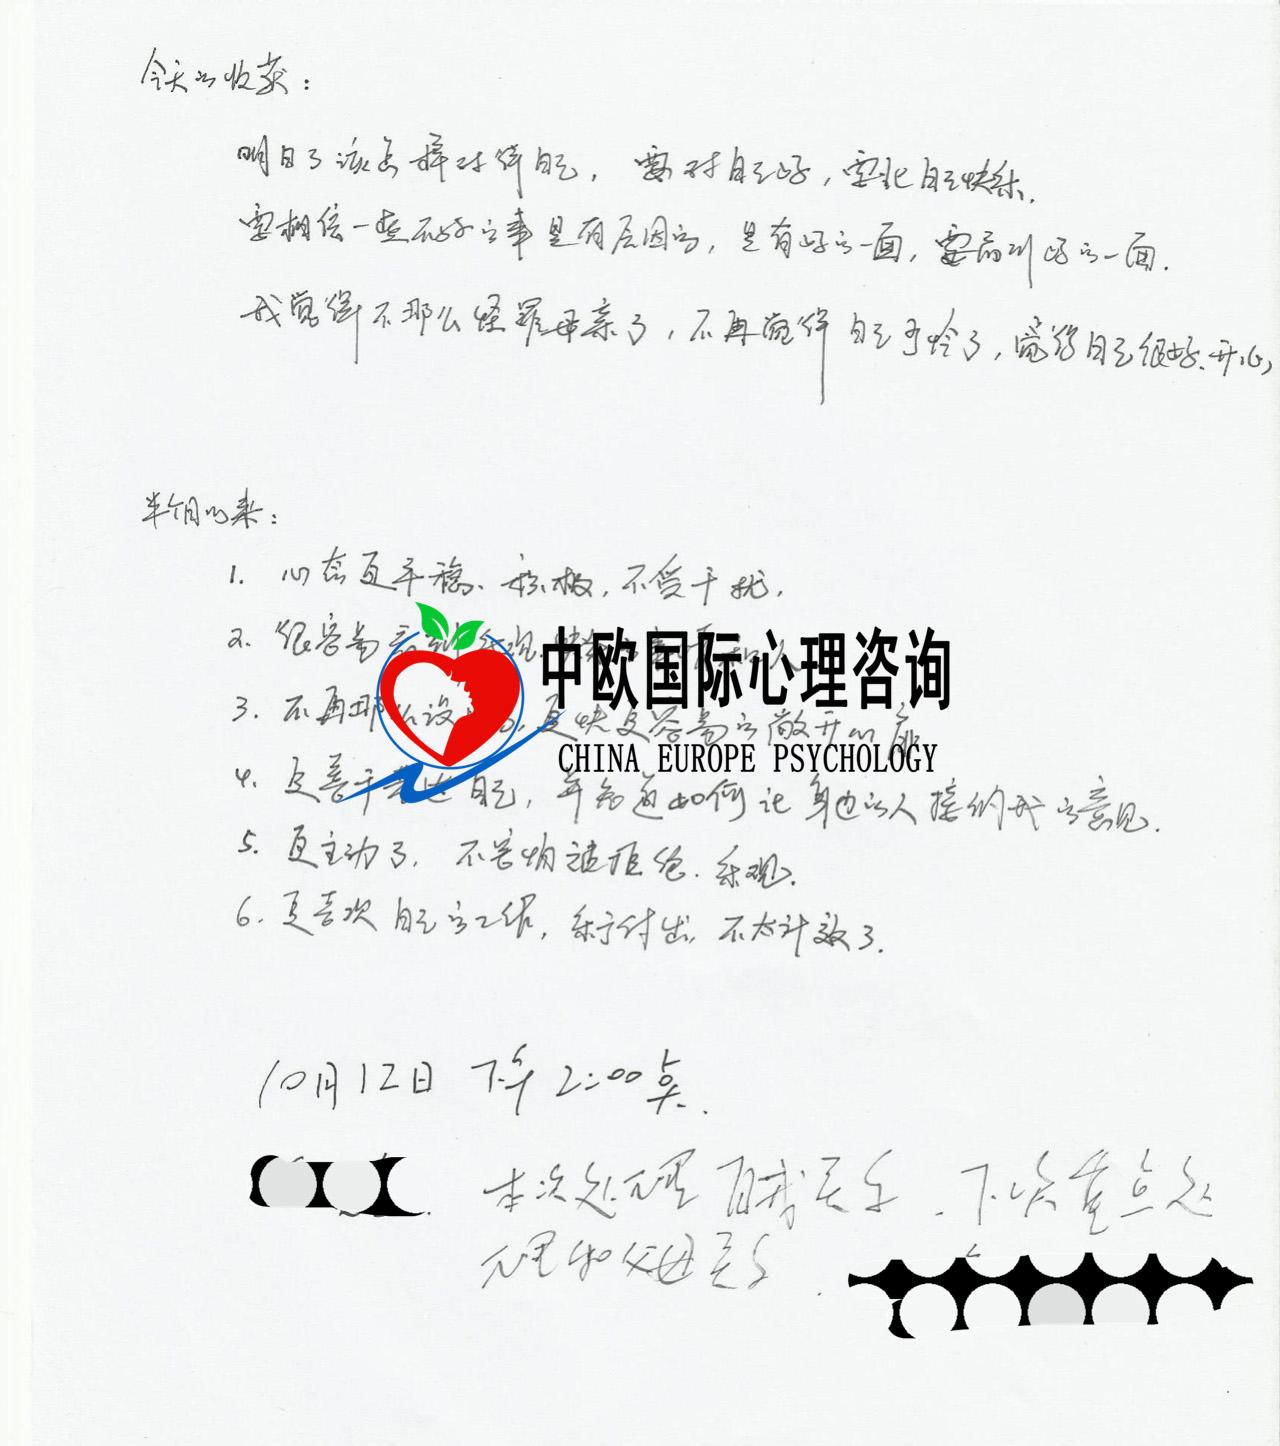 今天的收获：
明白了该怎样对待自己，要对自己好，要让自己快乐.
要相信一些不好的事是有原因的，是有好的一面，要看到好的一面.
我觉得不那么怪罪母亲了，不再觉得自己可怜了，觉得自己很好.开心
半个月以来：
1. 心态更平稳、积极，不受干扰.
2. 很容易
中欧国际心理咨询
3. 不再那么设 更快更容易的敞开心扉
CHINA EUROPE PSYCHOLOGY
4. 更善于表达自己，并知道如何让身边的人接纳我的意见.
5. 更主动了. 不害怕被拒绝. 乐观.
6. 更喜欢自己的工作，乐于付出，不太计较了.
10月12日 下午 2:00 点.
本次处理自我关系. 下次重点处
理和父母关系.